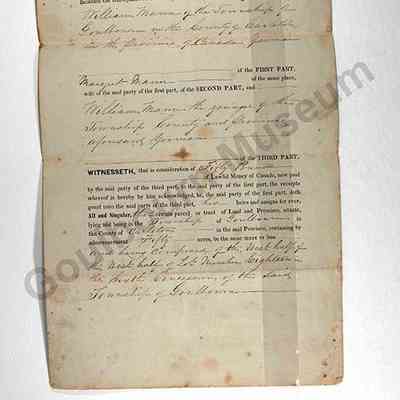 William Mann of the Township of
Goulbourn in the County of Carleton
in the Province of Canada Yeoman
of the FIRST PART,
Margret Mann of the same place,
wife of the said party of the first part, of the SECOND PART, and
William Mann the younger of the
Township County and Province
aforesaid Yeoman
of the THIRD PART,
WITNESSETH, that in consideration of Fifty Pounds
of Lawful Money of Canada, now paid
by the said party of the third part, to the said party of the first part, the receipt
whereof is hereby by him acknowledged, he, the said party of the first part, doth
grant unto the said party of the third part, his heirs and assigns for ever,
All and Singular, that certain parcel or tract of Land and Premises, situate,
lying and being in the Township of Goulbourn
in the County of Carleton in the said Province, containing by
admeasurement Fifty acres, be the same more or less
and being composed of the West half of
the West half of Lot Number Eighteen
in the Concession of the said
Township of Goulbourn
Goulbourn Museum